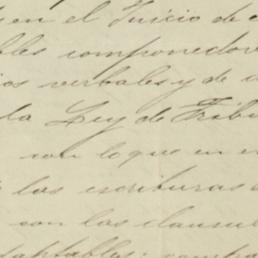 en el Juicio de
bles componedore
ios verbales y de
la Ley de Tribu
con lo que en
las escrituras
con las clausul